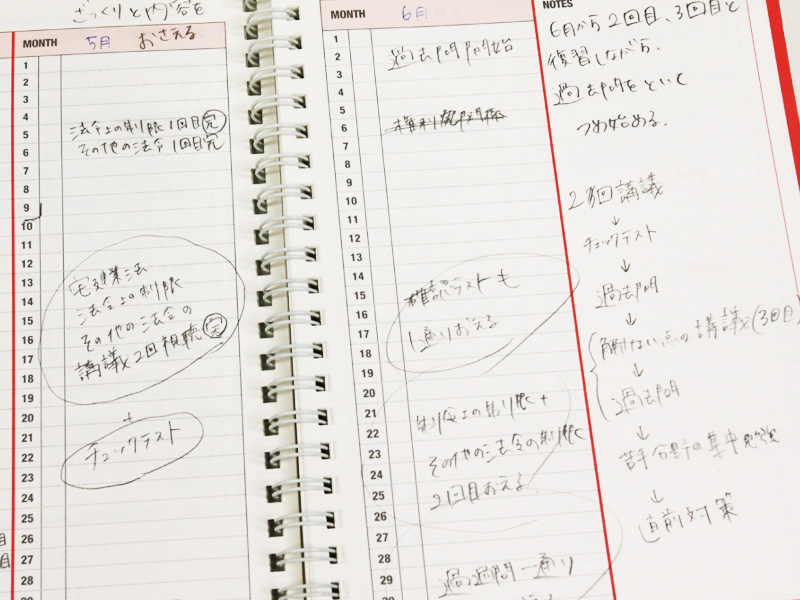 ざっくりと内容を
おさえる
MONTH 5月
1
2
3
4
5 法令上の制限1回目完
6 その他の法令1回目完
7
8
9
10
11
12
13 宅建業法
14 法令上の制限
15
16 その他の法令の
17 講義2回視聴完
18
19
20 +
21
22 チェックテスト
23
24
25
26
27
28
MONTH 6月
1
2 過去問開始
3
4
5
6 権利関係
7
8
9
10
11
12
13
14
15 確認テストも
16
17 1通りおえる
18
19
20
21 制令上の制限+
22
23 その他の法令の制限
24
25 2回目おえる
26
27
28 過過問一通り
29
NOTES
6月から2回目、3回目と
復習しながら、
過去問をといて
つめ始める。
2回講議
↓
チェックテスト
↓
過去問
↓
解けない点の講議(3回目)
↓
過去問
↓
苦手分野の集中
↓
直前対策